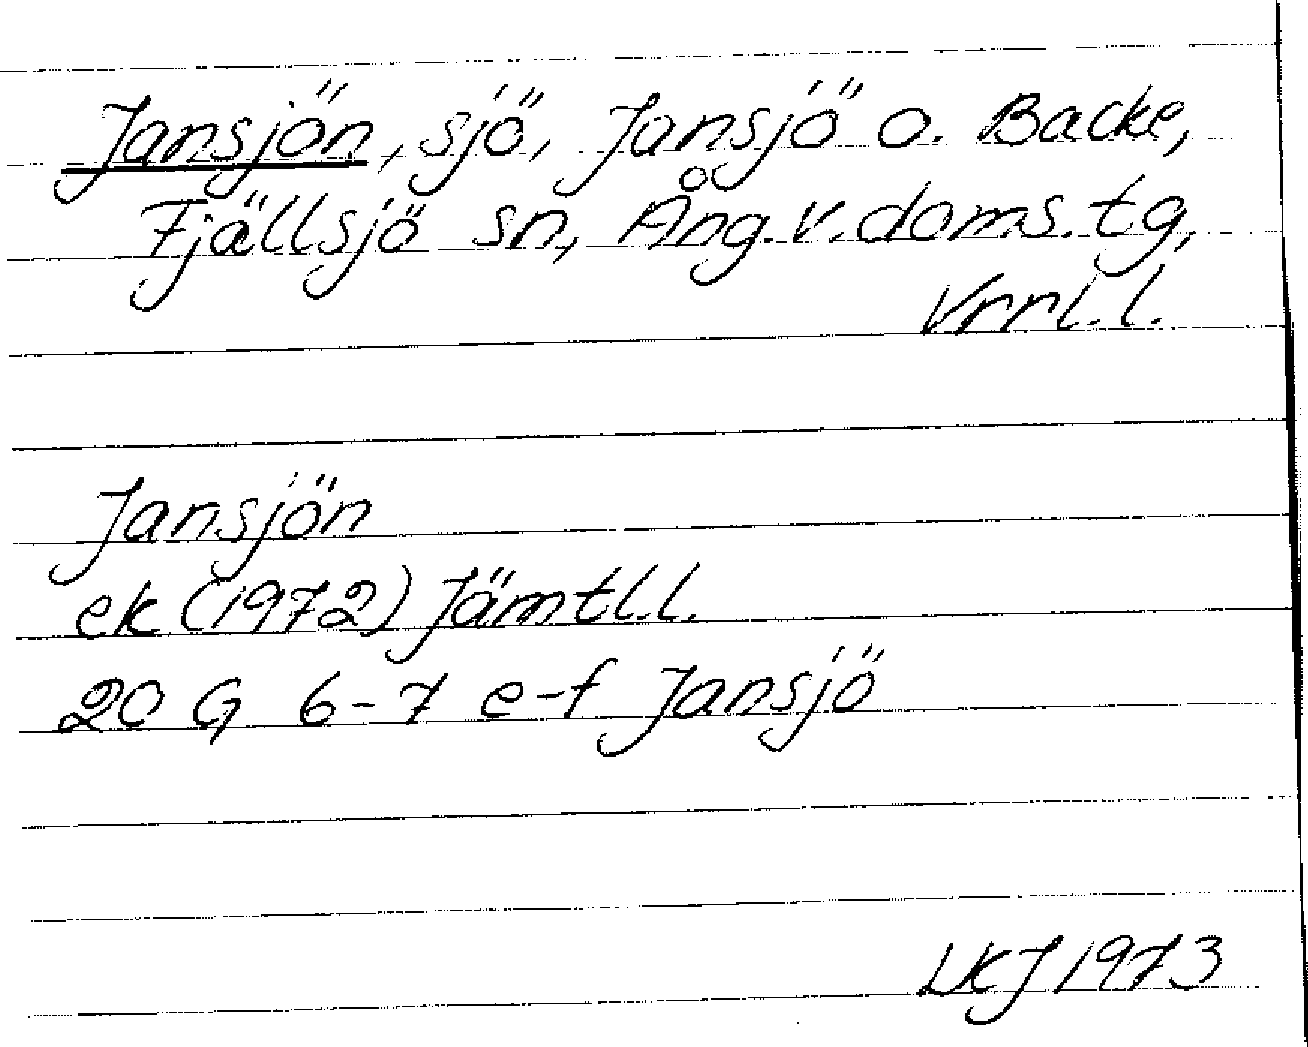 Jansjön, sjö, Jansjö o. Backe,
Fjällsjö sn, Ång. v. doms. tg,
Vrrl. l.
Jansjön
ek (1972) Jämtl.l.
20 G 6-7 e-f Jansjö
LKJ 1973